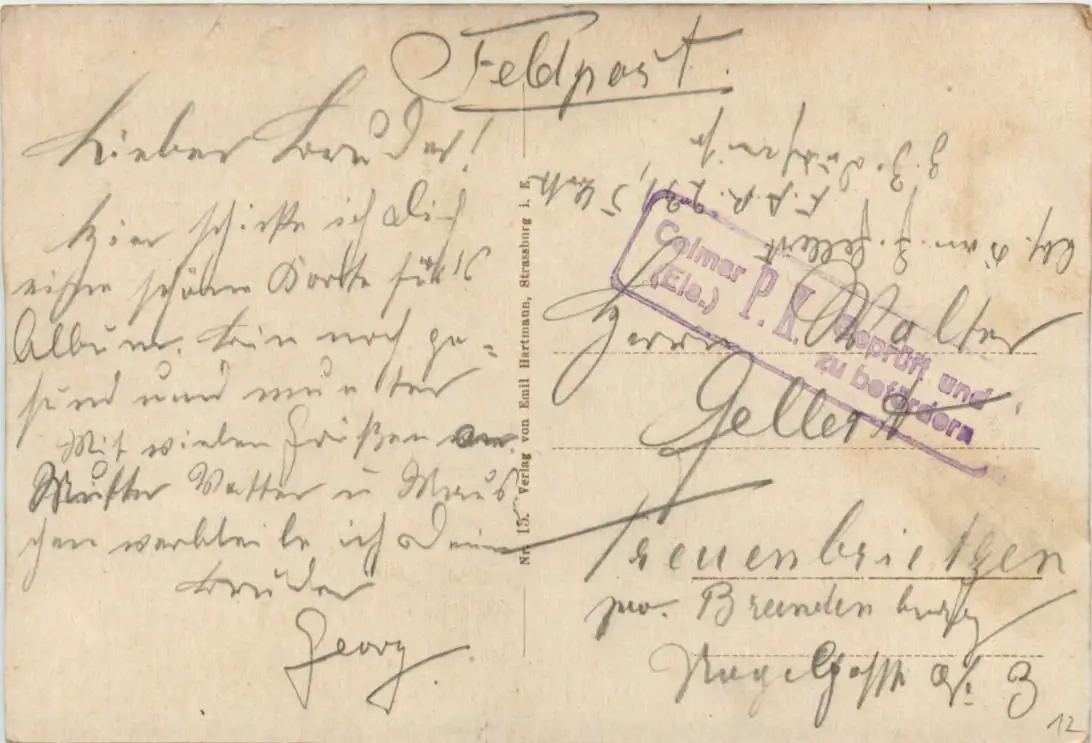 Feldpost.
Lieber Bruder!
Hier schicke ich Dir
eine schöne Karte für's
Album. Bin noch ge-
sund und munter
Mit vielen Grüßen an
Mutter Vatter u Maus
chen verbleibe ich Dein
Bruder
Georg.
Nr. 15. Verlag von Emil Hartmann, Strassburg i. E.
Colmar
(Els.)
P. K.
Geprüft und
zu befördern
Herrn Walter
Gellert
Treuenbrietzen
prov. Brandenburg
3
12